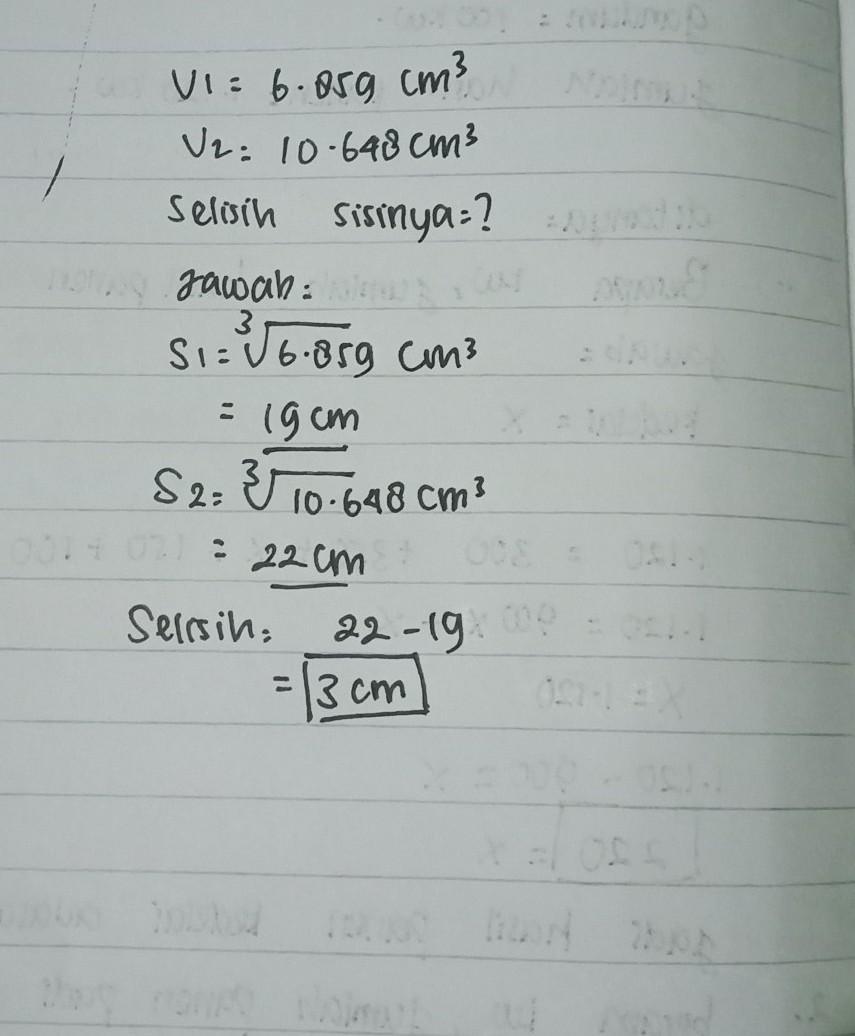 V1 = 6.859 cm³
V2 = 10.648 cm³
Selisih sisinya = ?
Jawab :
S1 = ³√6.859 cm³
= 19 cm
S2 = ³√10.648 cm³
= 22 cm
Selisih : 22 - 19
= 3 cm